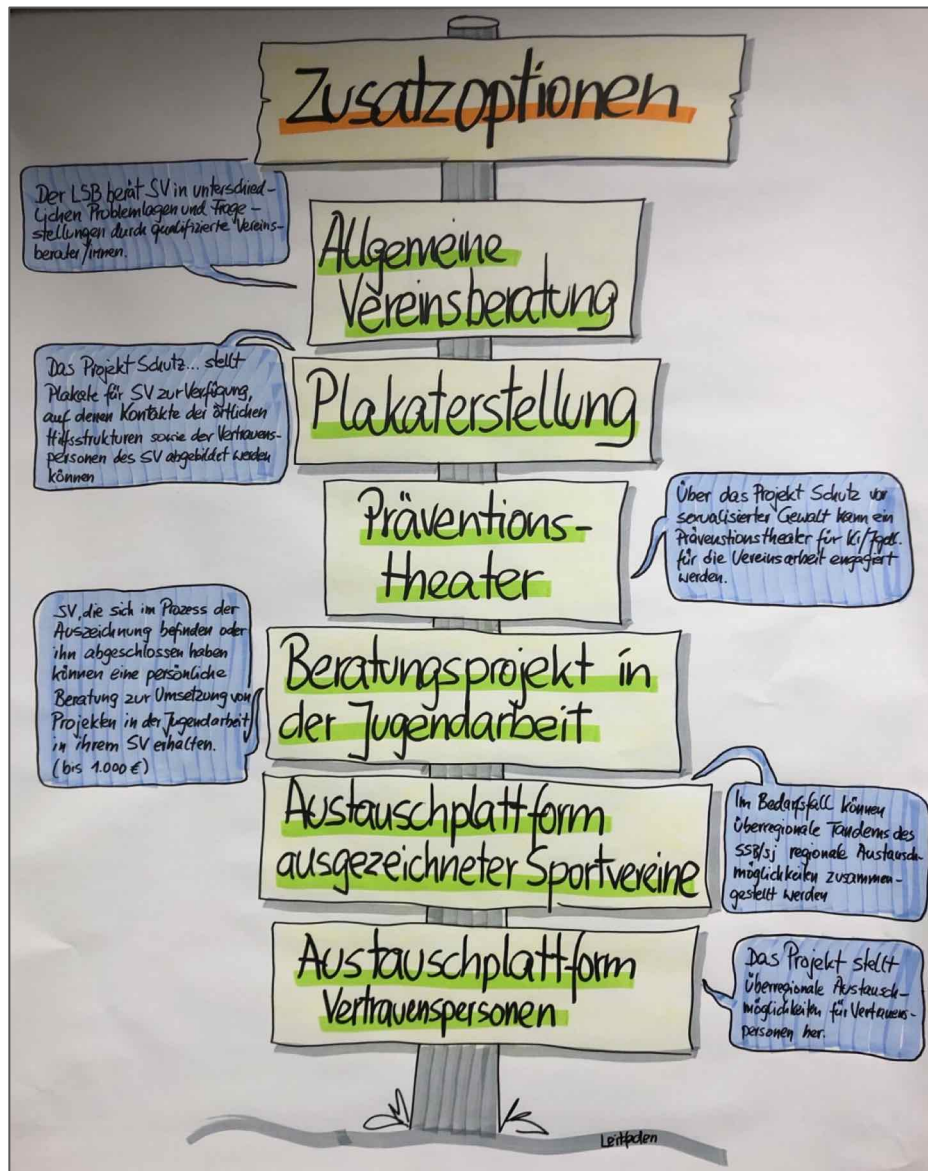 Zusatzoptionen
Der LSB berät SV in unterschied-
lichen Problemlagen und Frage-
stellungen durch qualifizierte Vereins-
berater/innen.
Allgemeine
Vereinsberatung
Das Projekt Schutz... stellt
Plakate für SV zur Verfügung,
auf denen Kontakte der örtlichen
Hilfsstrukturen sowie der Vertrauens-
personen des SV abgebildet werden
können
Plakaterstellung
Präventions-
theater
Über das Projekt Schutz vor
sexualisierter Gewalt kann ein
Präventionstheater für Ki/Jgdl.
für die Vereinsarbeit engagiert
werden.
SV, die sich im Prozess der
Auszeichnung befinden oder
ihn abgeschlossen haben
können eine persönliche
Beratung zur Umsetzung von
Projekten in der Jugendarbeit
in ihrem SV erhalten.
(bis 1.000 €)
Beratungsprojekt in
der Jugendarbeit
Austauschplattform
ausgezeichneter Sportvereine
Im Bedarfsfall können
überregionale Tandems des
SSB/sj regionale Austausch-
möglichkeiten zusammen-
gestellt werden
Austauschplattform
Vertrauenspersonen
Das Projekt stellt
überregionale Austausch-
möglichkeiten für Vertrauens-
personen her.
Leitfaden